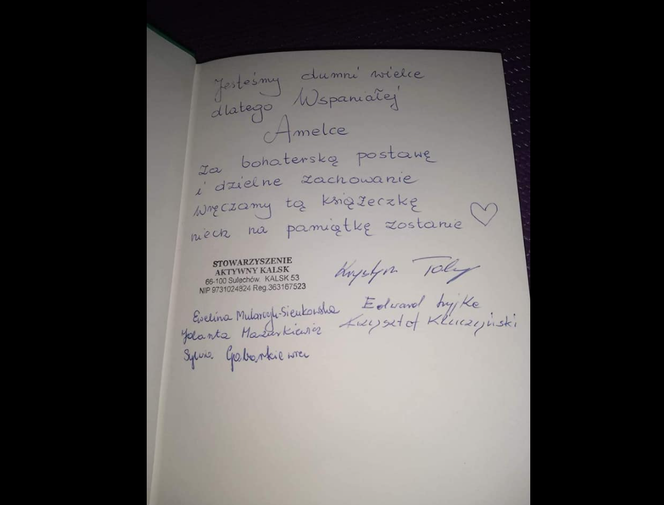 Jesteśmy dumni wielce
dlatego Wspaniałej
Amelce
za bohaterską postawę
i dzielne zachowanie
wręczamy tą książeczkę
niech na pamiątkę zostanie
STOWARZYSZENIE
AKTYWNY KALSK
66-100 Sulechów, KALSK 53
NIP 9731024824 Reg.363167523
Krystyn
Ewelina Mularczyk-Sienkowska
Edward
Jolanta Mazurkiewicz
Krzysztof Kluczyński
Sylwia